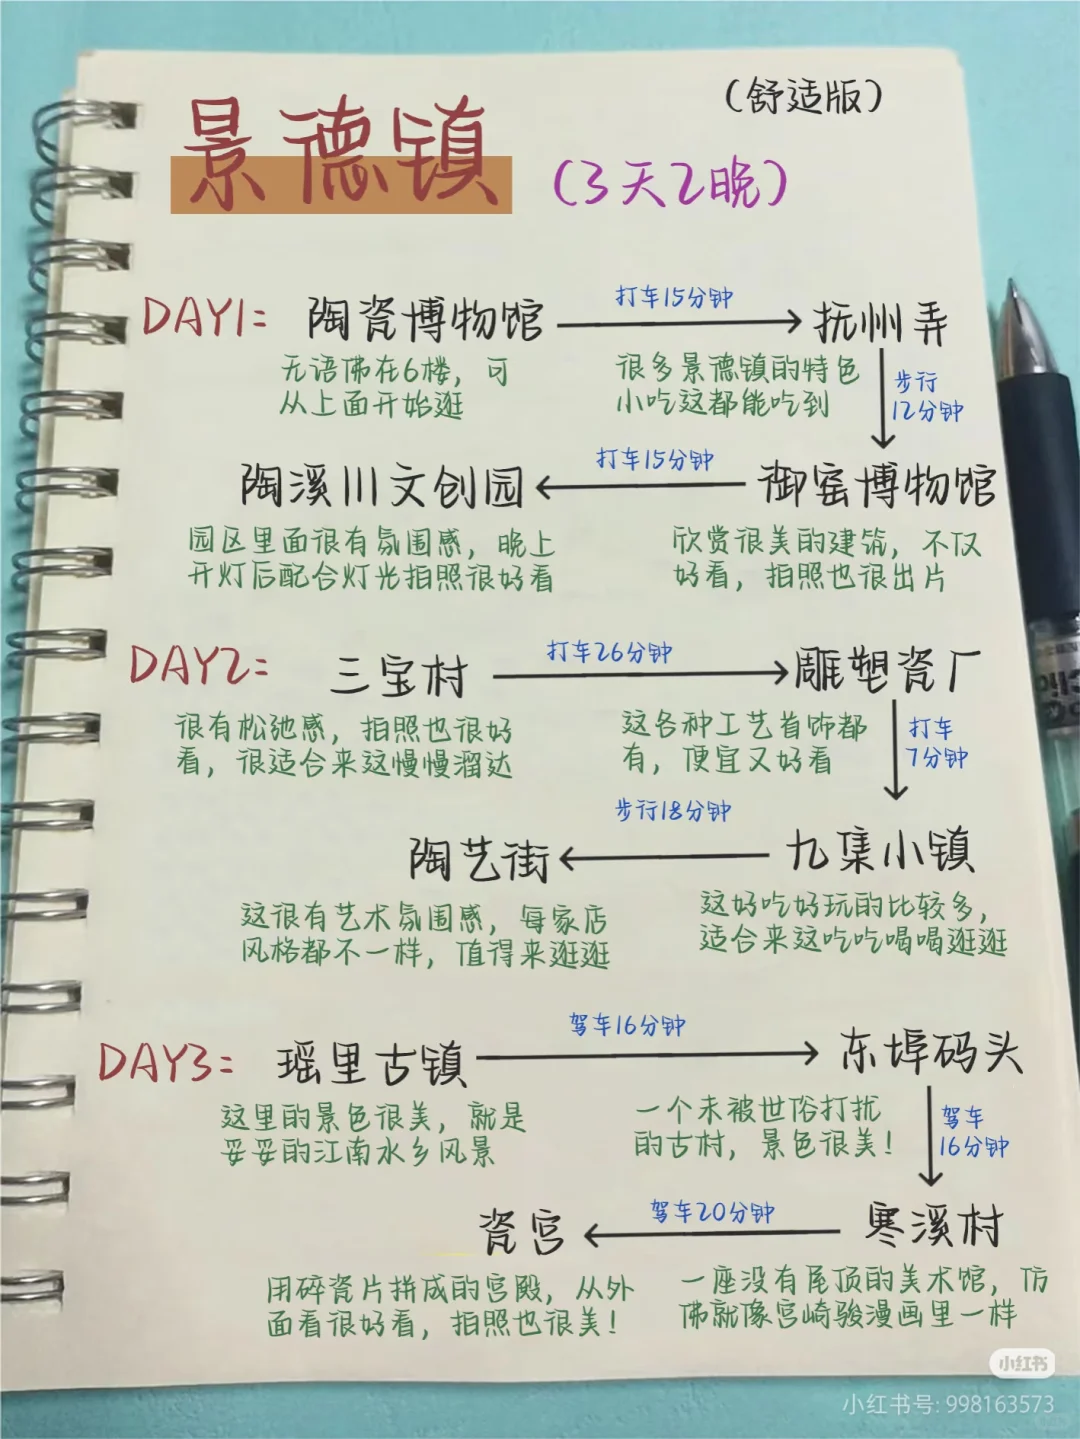 （舒适版）
景德镇
（3天2晚）
DAY1: 陶瓷博物馆 打车15分钟 抚州弄
无语佛在6楼，可
从上面开始逛
很多景德镇的特色
小吃这都能吃到
步行
12分钟
陶溪川文创园 打车15分钟 御窑博物馆
园区里面很有氛围感，晚上
开灯后配合灯光拍照很好看
欣赏很美的建筑，不仅
好看，拍照也很出片
DAY2: 三宝村 打车26分钟 雕塑瓷厂
很有松弛感，拍照也很好
看，很适合来这慢慢溜达
这各种工艺首饰都
有，便宜又好看
打车
7分钟
陶艺街 步行18分钟 九集小镇
这很有艺术氛围感，每家店
风格都不一样，值得来逛逛
这好吃好玩的比较多，
适合来这吃吃喝喝逛逛
DAY3: 瑶里古镇 驾车16分钟 东埠码头
这里的景色很美，就是
妥妥的江南水乡风景
一个未被世俗打扰
的古村，景色很美！
驾车
16分钟
瓷宫 驾车20分钟 寒溪村
用碎瓷片拼成的宫殿，从外
面看很好看，拍照也很美！
一座没有尾顶的美术馆，仿
佛就像宫崎骏漫画里一样
小红书
小红书号: 998163573